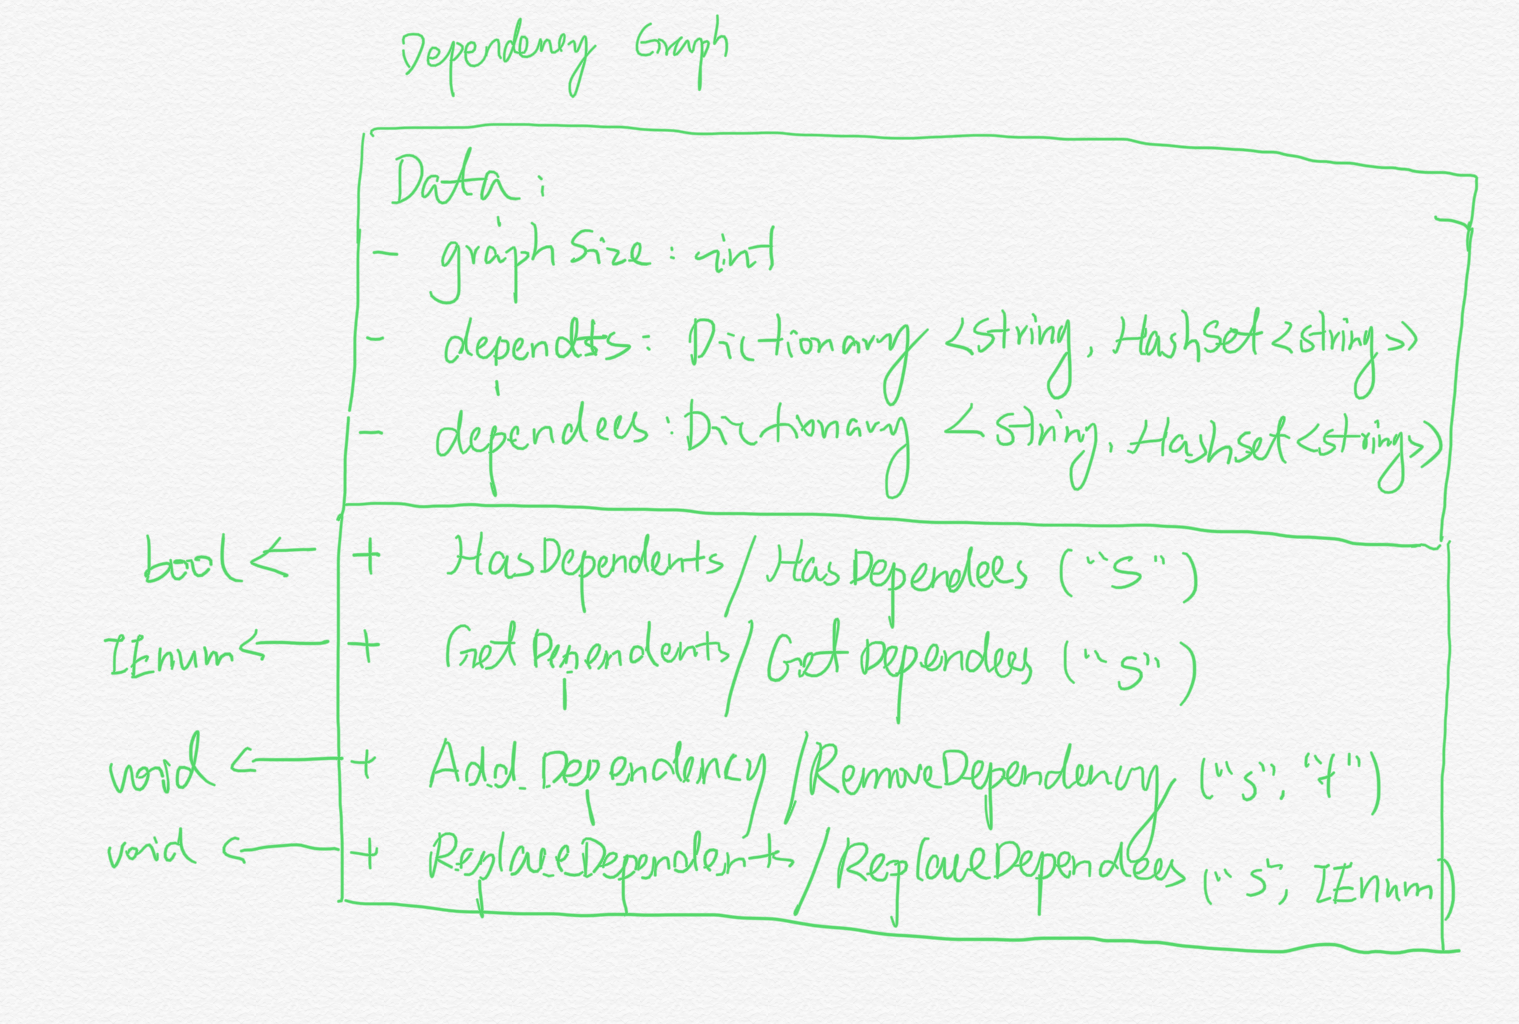 Dependency Graph
Data:
- graphSize: int
- dependts: Dictionary <string, HashSet<string>>
- dependees: Dictionary <string, Hashset<string>>
bool ← + HasDependents / HasDependees ("S")
IEnum ← + GetDependents / GetDependees ("S")
void ← + Add Dependency / RemoveDependency ("s", "t")
void ← + ReplaceDependents / ReplaceDependees ("S", IEnum)